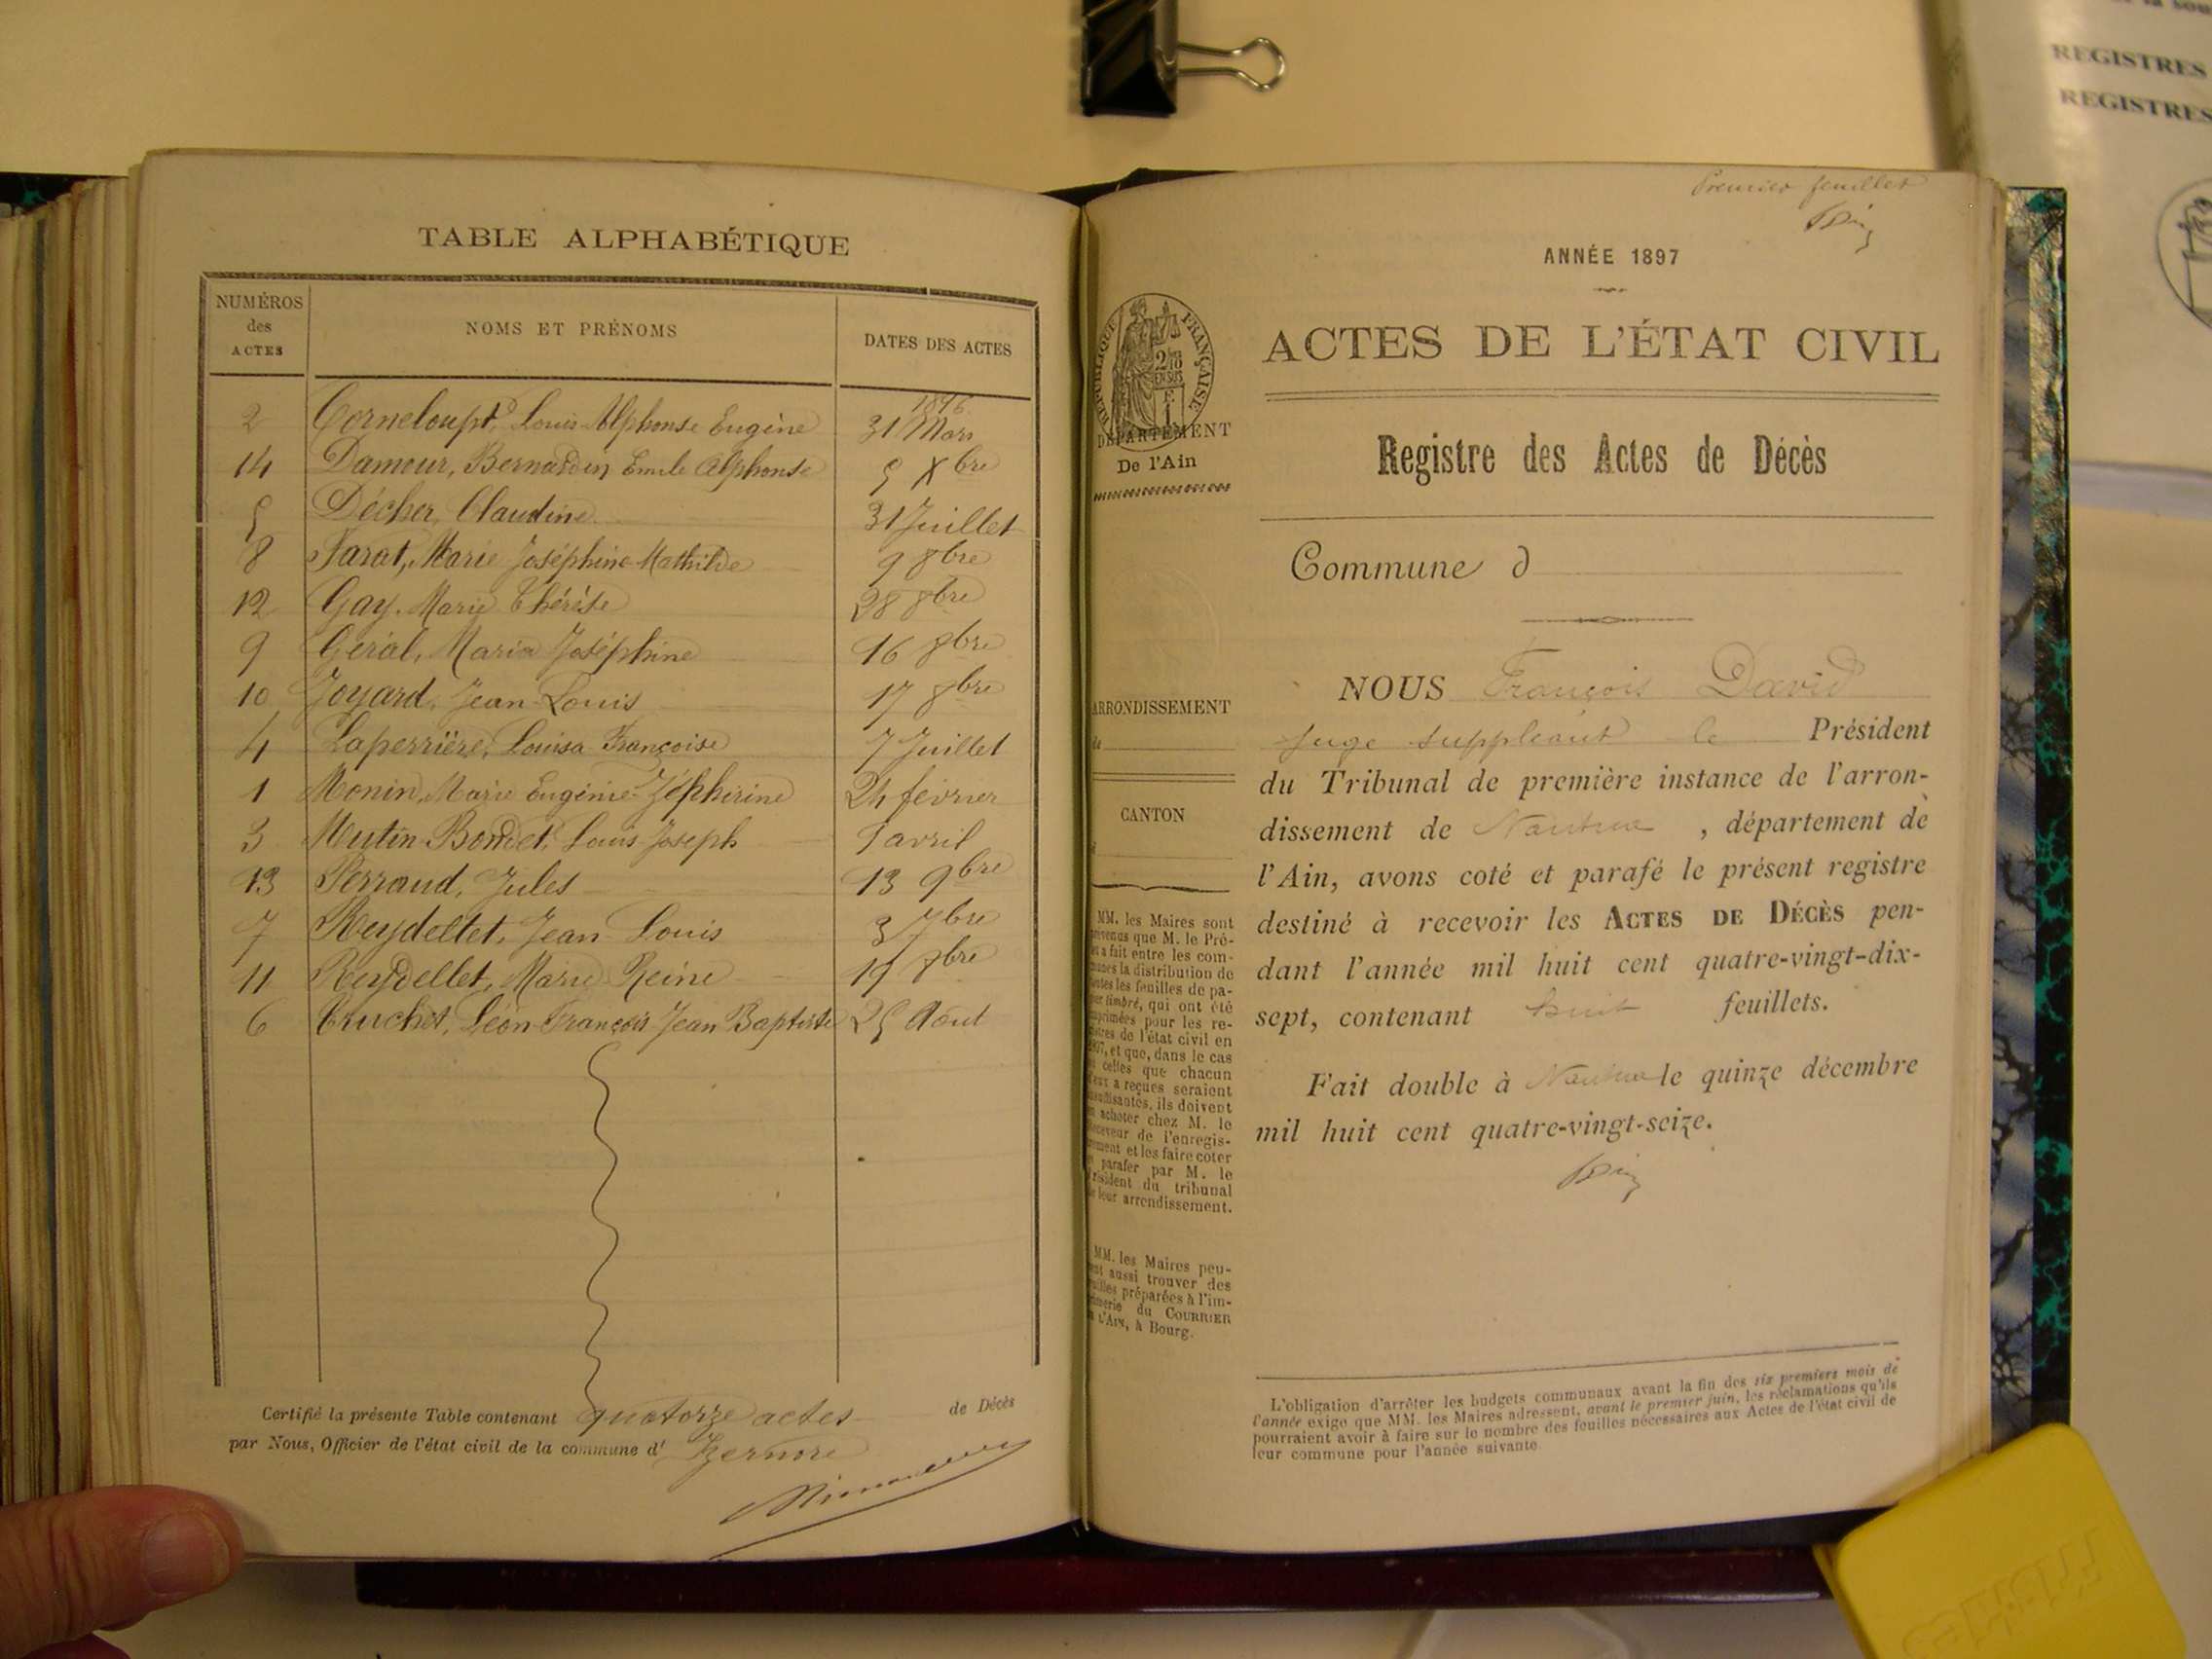 TABLE ALPHABÉTIQUE
NUMÉROS des ACTES
NOMS ET PRÉNOMS
DATES DES ACTES
1896
2 Corneloup, Louis Alphonse Eugène 31 Mars
14 Damour, Bernardin Emile Alphonse 5 Xbre
5 Décher, Claudine 31 Juillet
8 Farat, Marie Joséphine Mathilde 9 8bre
12 Gay, Marie Thérèse 28 8bre
9 Géral, Maria Joséphine 16 8bre
10 Joyard, Jean Louis 17 8bre
4 Laperrière, Louisa Françoise 7 Juillet
1 Monin, Marie Eugénie Zéphirine 24 février
3 Mutin-Bondet, Louis Joseph avril
13 Perraud, Jules 13 9bre
7 Reydellet, Jean Louis 3 7bre
11 Reydellet, Marie Reine 19 8bre
6 Truchet, Léon François Jean Baptiste 25 Août
Certifié la présente Table contenant quatorze actes de Décès
par Nous, Officier de l'état civil de la commune d' Izernore
Premier feuillet
ANNÉE 1897
ACTES DE L'ÉTAT CIVIL
Registre des Actes de Décès
Commune d
NOUS François David
juge suppléant le Président
du Tribunal de première instance de l'arron-
dissement de Nantua , département de
l'Ain, avons coté et parafé le présent registre
destiné à recevoir les ACTES DE DÉCÈS pen-
dant l'année mil huit cent quatre-vingt-dix-
sept, contenant huit feuillets.
Fait double à Nantua le quinze décembre
mil huit cent quatre-vingt-seize.
L'obligation d'arrêter les budgets communaux avant la fin des six premiers mois de
l'année exige que MM. les Maires adressent, avant le premier juin, les réclamations qu'ils
pourraient avoir à faire sur le nombre des feuilles nécessaires aux Actes de l'état civil de
leur commune pour l'année suivante
RÉPUBLIQUE FRANÇAISE
DÉPARTEMENT
De l'Ain
ARRONDISSEMENT
CANTON
MM. les Maires sont
que M. le Pré-
a fait entre les com-
la distribution de
les feuilles de pa-
timbré, qui ont été
pour les re-
de l'état civil en
et que, dans le cas
celles que chacun
a reçues seraient
ils doivent
acheter chez M. le
de l'enregis-
et les faire coter
parafer par M. le
du tribunal
leur arrondissement.
MM. les Maires peu-
aussi trouver des
préparées à l'im-
du COURRIER
à Bourg.
REGISTRES
REGISTRES